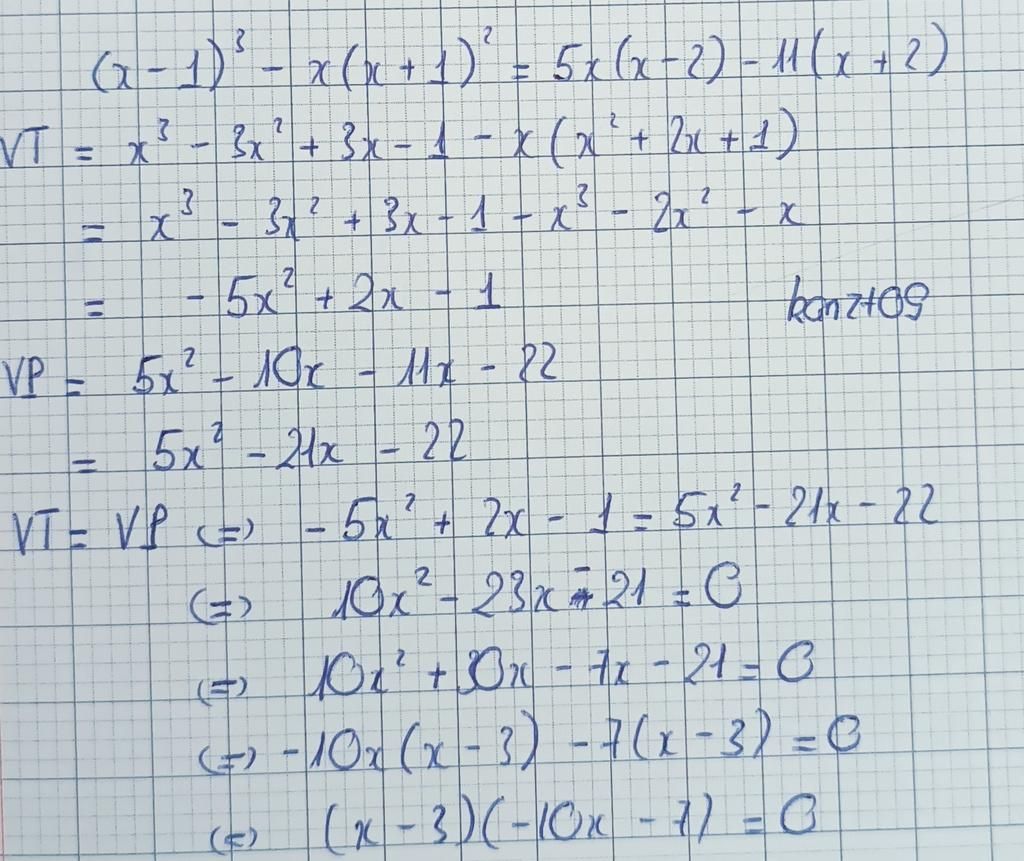 (x - 1)³ - x(x + 1)² = 5x(x - 2) - 11(x + 2)
VT = x³ - 3x² + 3x - 1 - x(x² + 2x + 1)
= x³ - 3x² + 3x - 1 - x³ - 2x² - x
= - 5x² + 2x - 1
VP = 5x² - 10x - 11x - 22
= 5x² - 21x - 22
VT = VP (=) - 5x² + 2x - 1 = 5x² - 21x - 22
(=) 10x² - 23x - 21 = 0
(=) 10x² + 30x - 7x - 21 = 0
(=) -10x(x - 3) - 7(x - 3) = 0
(=) (x - 3)(-10x - 7) = 0